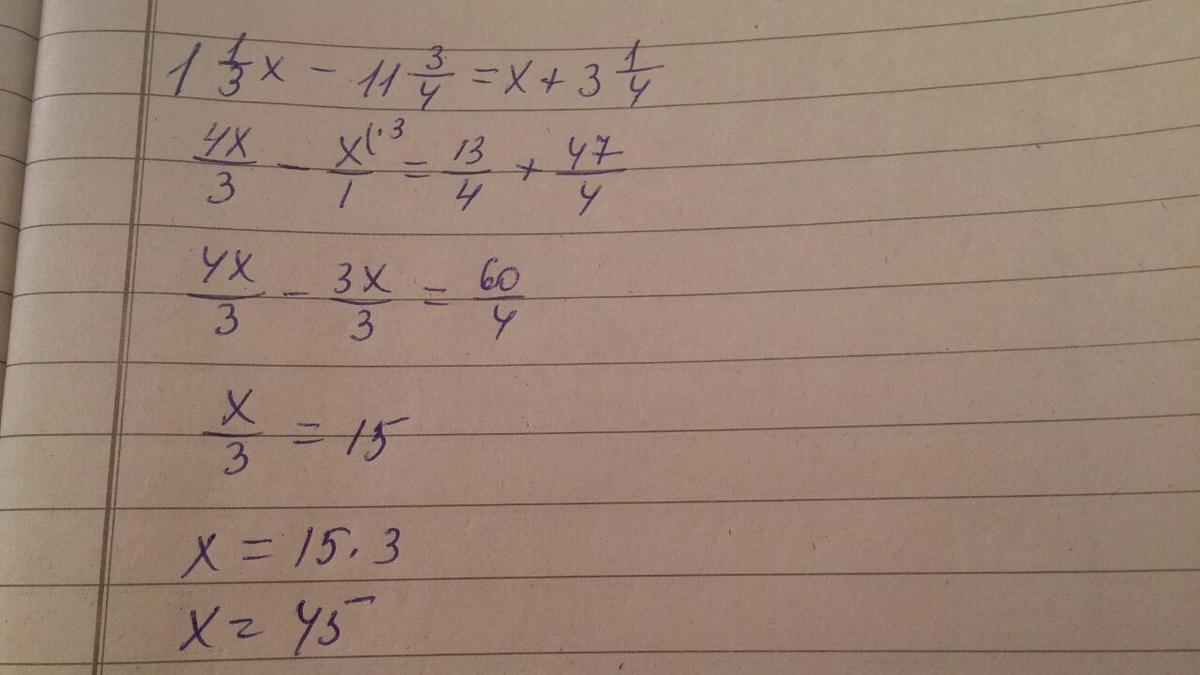 1 1/3 x - 11 3/4 = x + 3 1/4
4x/3 - x(·3/1 = 13/4 + 47/4
4x/3 - 3x/3 = 60/4
x/3 = 15
x = 15 · 3
x = 45